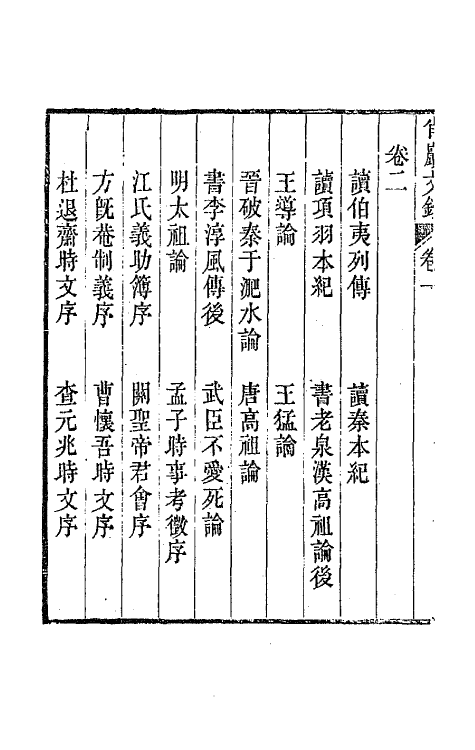 卷二
讀伯夷列傳
讀秦本紀
讀項羽本紀
書老泉漢高祖論後
王導論
王猛論
晉破秦于淝水論
唐高祖論
書李淳風傳後
武臣不愛死論
明太祖論
孟子時事考徵序
江氏義助簿序
關聖帝君會序
方旣菴制義序
曹懷吾時文序
杜退齋時文序
查元兆時文序